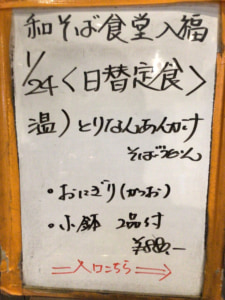 和そば食堂 入福
1/24 <日替定食>
温) とりなんあんかけ
そばうどん
・おにぎり(かつお)
・小鉢 2品付
¥880.-
入口こちら